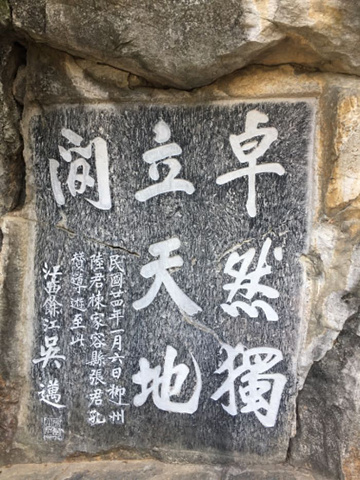 卓然獨
立天地
間
民國廿四年一月六日柳州
陸君棟家容縣張君敬
遊至此
江西餘江吳邁